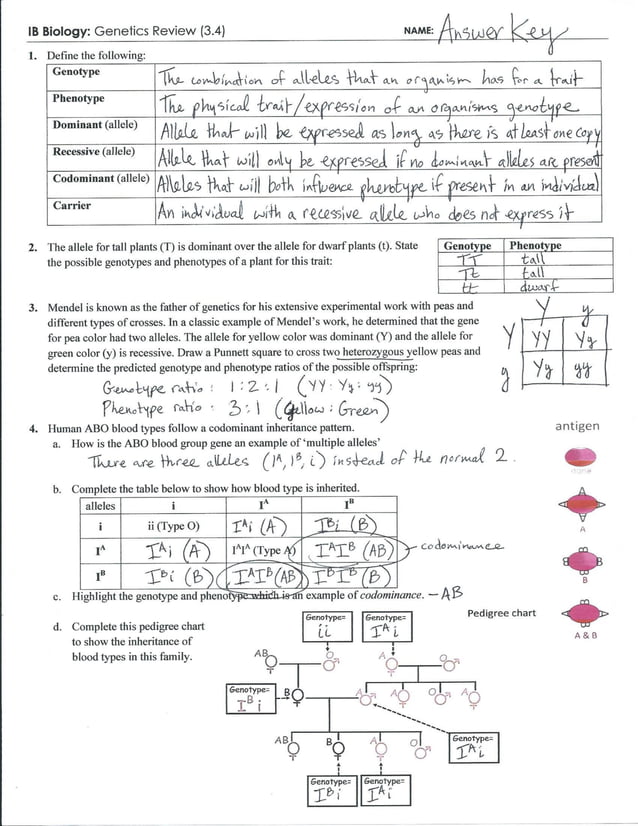 IB Biology: Genetics Review (3.4) NAME: Answer Key
1. Define the following:
Genotype The combination of alleles that an organism has for a trait
Phenotype The physical trait/expression of an organisms genotype
Dominant (allele) Allele that will be expressed as long as there is at least one copy
Recessive (allele) Allele that will only be expressed if no dominant alleles are present
Codominant (allele) Alleles that will both influence phenotype if present in an individual
Carrier An individual with a recessive allele who does not express it
2. The allele for tall plants (T) is dominant over the allele for dwarf plants (t). State
the possible genotypes and phenotypes of a plant for this trait:
Genotype Phenotype
TT tall
Tt tall
tt dwarf
3. Mendel is known as the father of genetics for his extensive experimental work with peas and
different types of crosses. In a classic example of Mendel's work, he determined that the gene
for pea color had two alleles. The allele for yellow color was dominant (Y) and the allele for
green color (y) is recessive. Draw a Punnett square to cross two heterozygous yellow peas and
determine the predicted genotype and phenotype ratios of the possible offspring:
Y y
Y YY Yy
y Yy yy
Genotype ratio : 1:2:1 (YY: Yy: yy)
Phenotype ratio : 3:1 (Yellow: Green)
4. Human ABO blood types follow a codominant inheritance pattern.
a. How is the ABO blood group gene an example of 'multiple alleles'
There are three alleles (Iᴬ, Iᴮ, i) instead of the normal 2.
antigen
none
A
B
A & B
b. Complete the table below to show how blood type is inherited.
alleles i Iᴬ Iᴮ
i ii (Type O) Iᴬi (A) Iᴮi (B)
Iᴬ Iᴬi (A) IᴬIᴬ (Type A) IᴬIᴮ (AB) codominance
Iᴮ Iᴮi (B) IᴬIᴮ (AB) IᴮIᴮ (B)
c. Highlight the genotype and phenotype which is an example of codominance. – AB
d. Complete this pedigree chart
to show the inheritance of
blood types in this family.
Pedigree chart
Genotype= ii
Genotype= Iᴬi
AB O A O
Genotype= Iᴮi
B A A O A
AB B A O
Genotype= Iᴬi
Genotype= Iᴮi
Genotype= Iᴬi